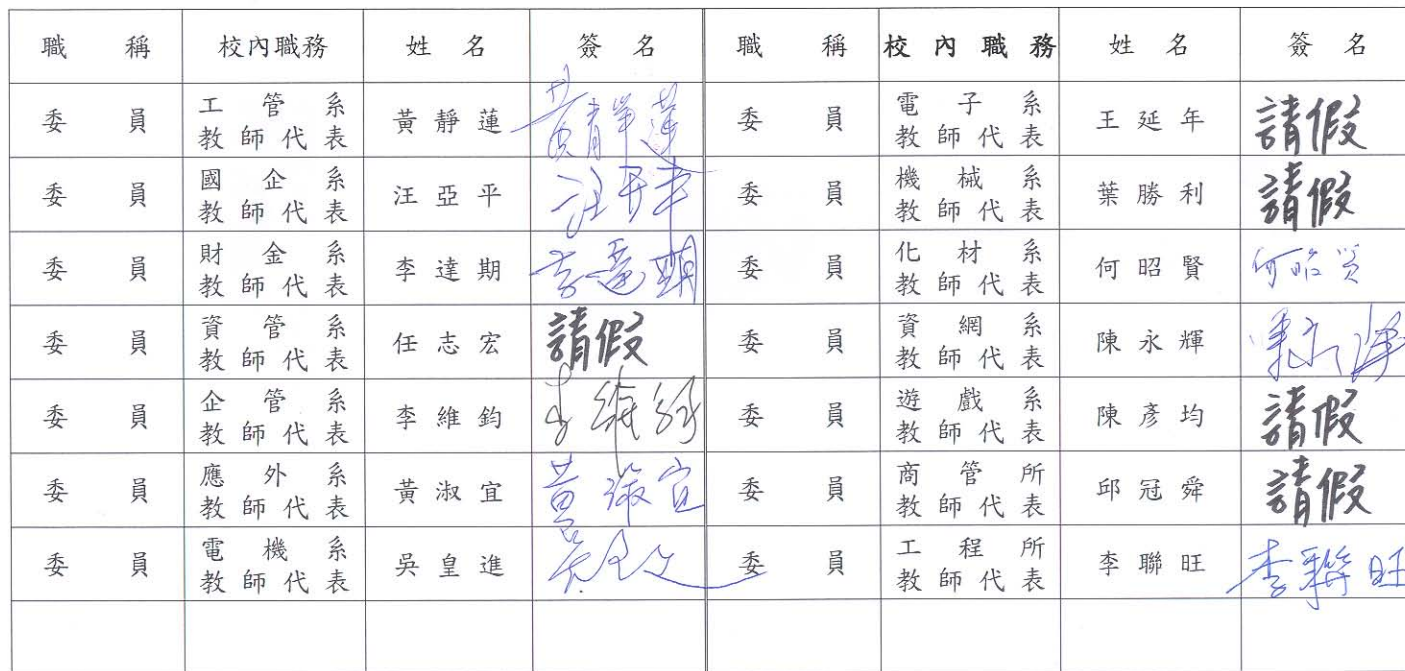 職稱 校內職務 姓名 簽名 職稱 校內職務 姓名 簽名
委員 工管系教師代表 黃靜蓮 黃靜蓮 委員 電子系教師代表 王延年 請假
委員 國企系教師代表 汪亞平 汪亞平 委員 機械系教師代表 葉勝利 請假
委員 財金系教師代表 李達期 李達期 委員 化材系教師代表 何昭賢 何昭賢
委員 資管系教師代表 任志宏 請假 委員 資網系教師代表 陳永輝 陳永輝
委員 企管系教師代表 李維鈞 李維鈞 委員 遊戲系教師代表 陳彥均 請假
委員 應外系教師代表 黃淑宜 黃淑宜 委員 商管所教師代表 邱冠舜 請假
委員 電機系教師代表 吳皇進 委員 工程所教師代表 李聯旺 李聯旺